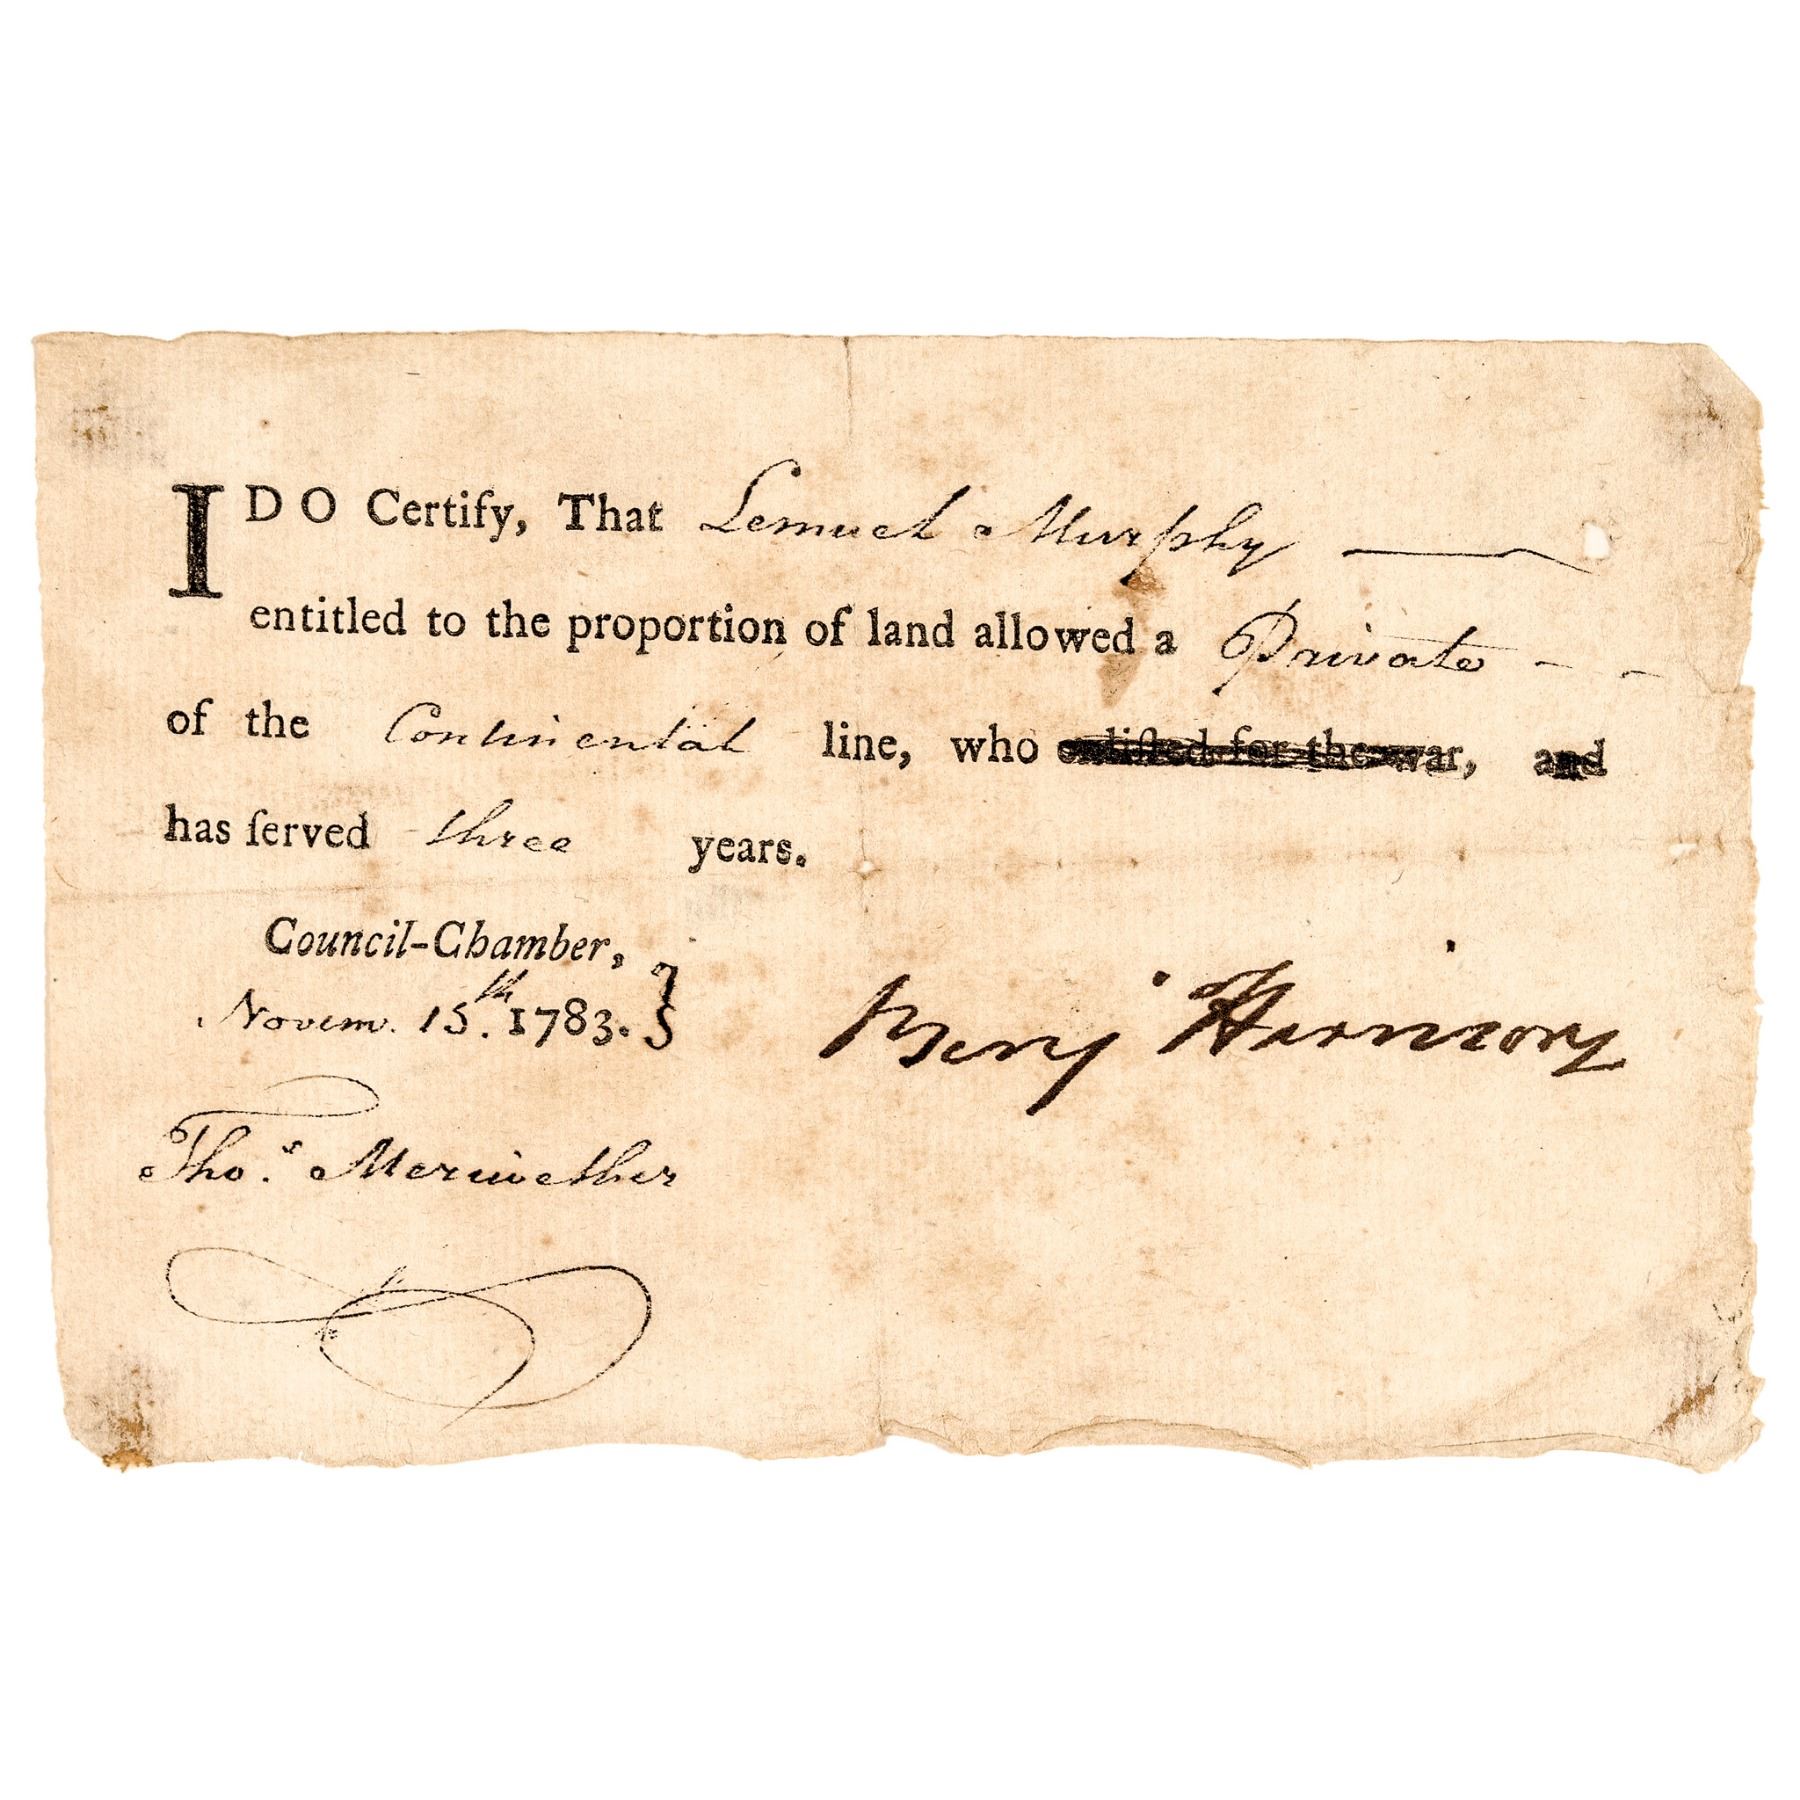 I DO Certify, That Lemuel Murphy
entitled to the proportion of land allowed a Private - -
of the Continental line, who enliſted for the war, and
has ſerved three years.
Council-Chamber,
Novem. 15.th 1783. }
Benj Harrison
Tho.s Meriwether